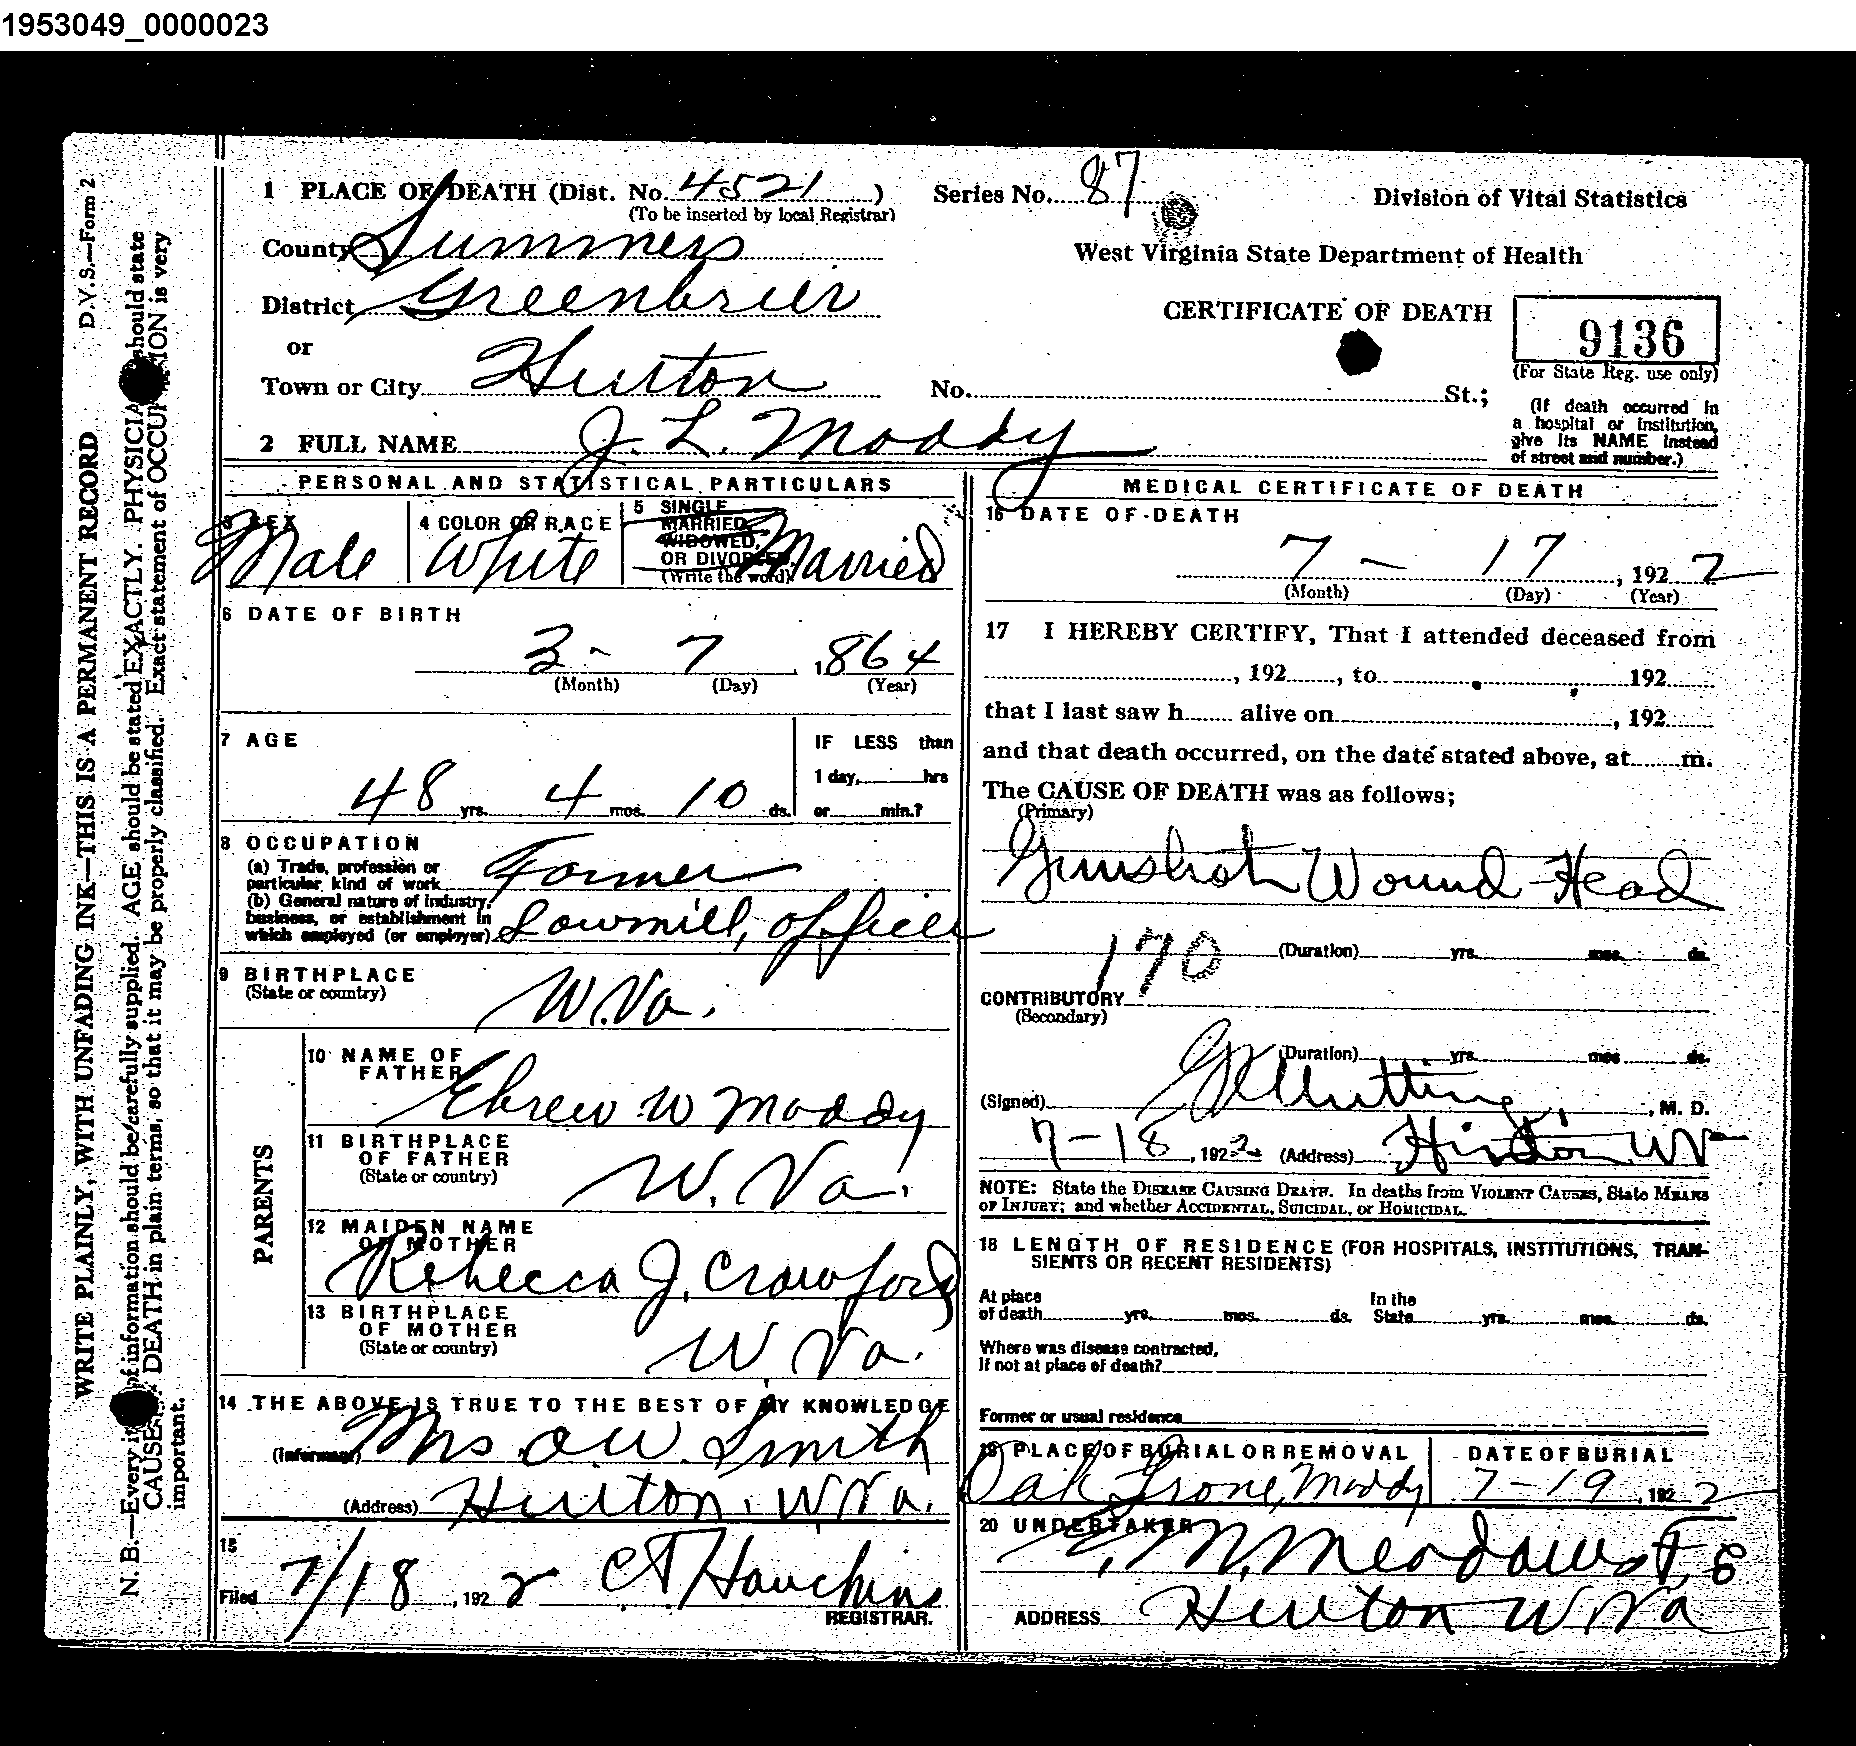 1953049_0000023
D.V.S.—Form 2
WRITE PLAINLY, WITH UNFADING INK—THIS IS A PERMANENT RECORD
N. B.—Every it of information should be carefully supplied. AGE should be stated EXACTLY. PHYSICIA should state
CAUSE DEATH in plain terms, so that it may be properly classified. Exact statement of OCCUP TION is very
important.
1 PLACE OF DEATH (Dist. No. 4521 )
(To be inserted by local Registrar)
County Summers
District Greenbrier
or
Town or City Hinton
Series No. 87
Division of Vital Statistics
West Virginia State Department of Health
CERTIFICATE OF DEATH
9136
(For State Reg. use only)
No. St.;
(If death occurred in
a hospital or institution,
give its NAME instead
of street and number.)
2 FULL NAME J. L. Moddy
PERSONAL AND STATISTICAL PARTICULARS
3 SEX
Male
4 COLOR OR RACE
White
5 SINGLE
MARRIED,
WIDOWED,
OR DIVORCED
(Write the word)
Married
6 DATE OF BIRTH
3 - 7 , 1864
(Month) (Day) (Year)
7 AGE
48 yrs. 4 mos. 10 ds.
IF LESS than
1 day, hrs
or min.?
8 OCCUPATION
(a) Trade, profession or
particular kind of work Farmer
(b) General nature of industry,
business, or establishment in
which employed (or employer) Sawmill, officer
9 BIRTHPLACE
(State or country) W. Va.
PARENTS
10 NAME OF
FATHER W Moddy
11 BIRTHPLACE
OF FATHER
(State or country) W. Va.
12 MAIDEN NAME
OF MOTHER
Rebecca J. Crawford
13 BIRTHPLACE
OF MOTHER
(State or country) W Va.
14 THE ABOVE IS TRUE TO THE BEST OF MY KNOWLEDGE
(Informant) Mrs O.W. Smith
(Address) Hinton, W Va.
15
Filed 7/18 , 1922 REGISTRAR.
MEDICAL CERTIFICATE OF DEATH
16 DATE OF DEATH
7 - 17 , 1922
(Month) (Day) (Year)
17 I HEREBY CERTIFY, That I attended deceased from
, 192 , to 192
that I last saw h alive on , 192
and that death occurred, on the date stated above, at m.
The CAUSE OF DEATH was as follows;
(Primary)
Gunshot Wound Head
170 (Duration) yrs. mos. ds.
CONTRIBUTORY
(Secondary)
(Duration) yrs. mos. ds.
(Signed) , M. D.
7-18 , 1922 (Address) Hinton WV
NOTE: State the DISEASE CAUSING DEATH. In deaths from VIOLENT CAUSES, State MEANS
OF INJURY; and whether ACCIDENTAL, SUICIDAL, or HOMICIDAL.
18 LENGTH OF RESIDENCE (FOR HOSPITALS, INSTITUTIONS, TRAN-
SIENTS OR RECENT RESIDENTS)
At place
of death yrs. mos. ds.
In the
State yrs. mos. ds.
Where was disease contracted,
If not at place of death?
Former or usual residence
19 PLACE OF BURIAL OR REMOVAL
Oak Grove, Moddy
DATE OF BURIAL
7-19 , 1922
20 UNDERTAKER
Meadows
ADDRESS Hinton W Va